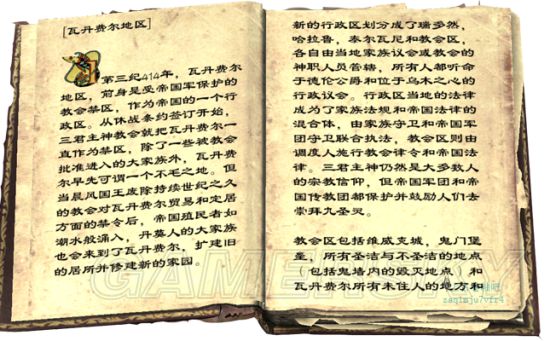 [瓦丹费尔地区]
第三纪414年，瓦丹费尔
地区，前身是受帝国军保护的
教会禁区，作为帝国的一个行
政区。从休战条约签订开始，
三君主神教会就把瓦丹费尔一
直作为禁区，除了一些被教会
批准进入的大家族外，瓦丹费
尔早先可谓一个不毛之地。但
当晨风国王废除持续世纪之久
的教会对瓦丹费尔贸易和定居
方面的禁令后，帝国殖民者如
潮水般涌入，丹莫人的大家族
也会来到了瓦丹费尔，扩建旧
的居所并修建新的家园。
新的行政区划分成了瑞多然，
哈拉鲁，泰尔瓦尼和教会区，
各自由当地家族议会或教会的
神职人员管辖，所有人都听命
于德伦公爵和位于乌木之心的
行政议会。行政区当地的法律
成为了家族法规和帝国法律的
混合体，由家族守卫和帝国军
团守卫联合执法，教会区则由
调度人施行教会律令和帝国法
律。三君主神仍然是大多数人
的宗教信仰，但帝国军团和帝
国传教团都保护并鼓励人们去
崇拜九圣灵。
教会区包括维威克城，鬼门堡
垒，所有圣洁与不圣洁的地点
（包括鬼墙内的毁灭地点）和
瓦丹费尔所有未住人的地方和
GAMERSKY
zaq1mju7vfr4